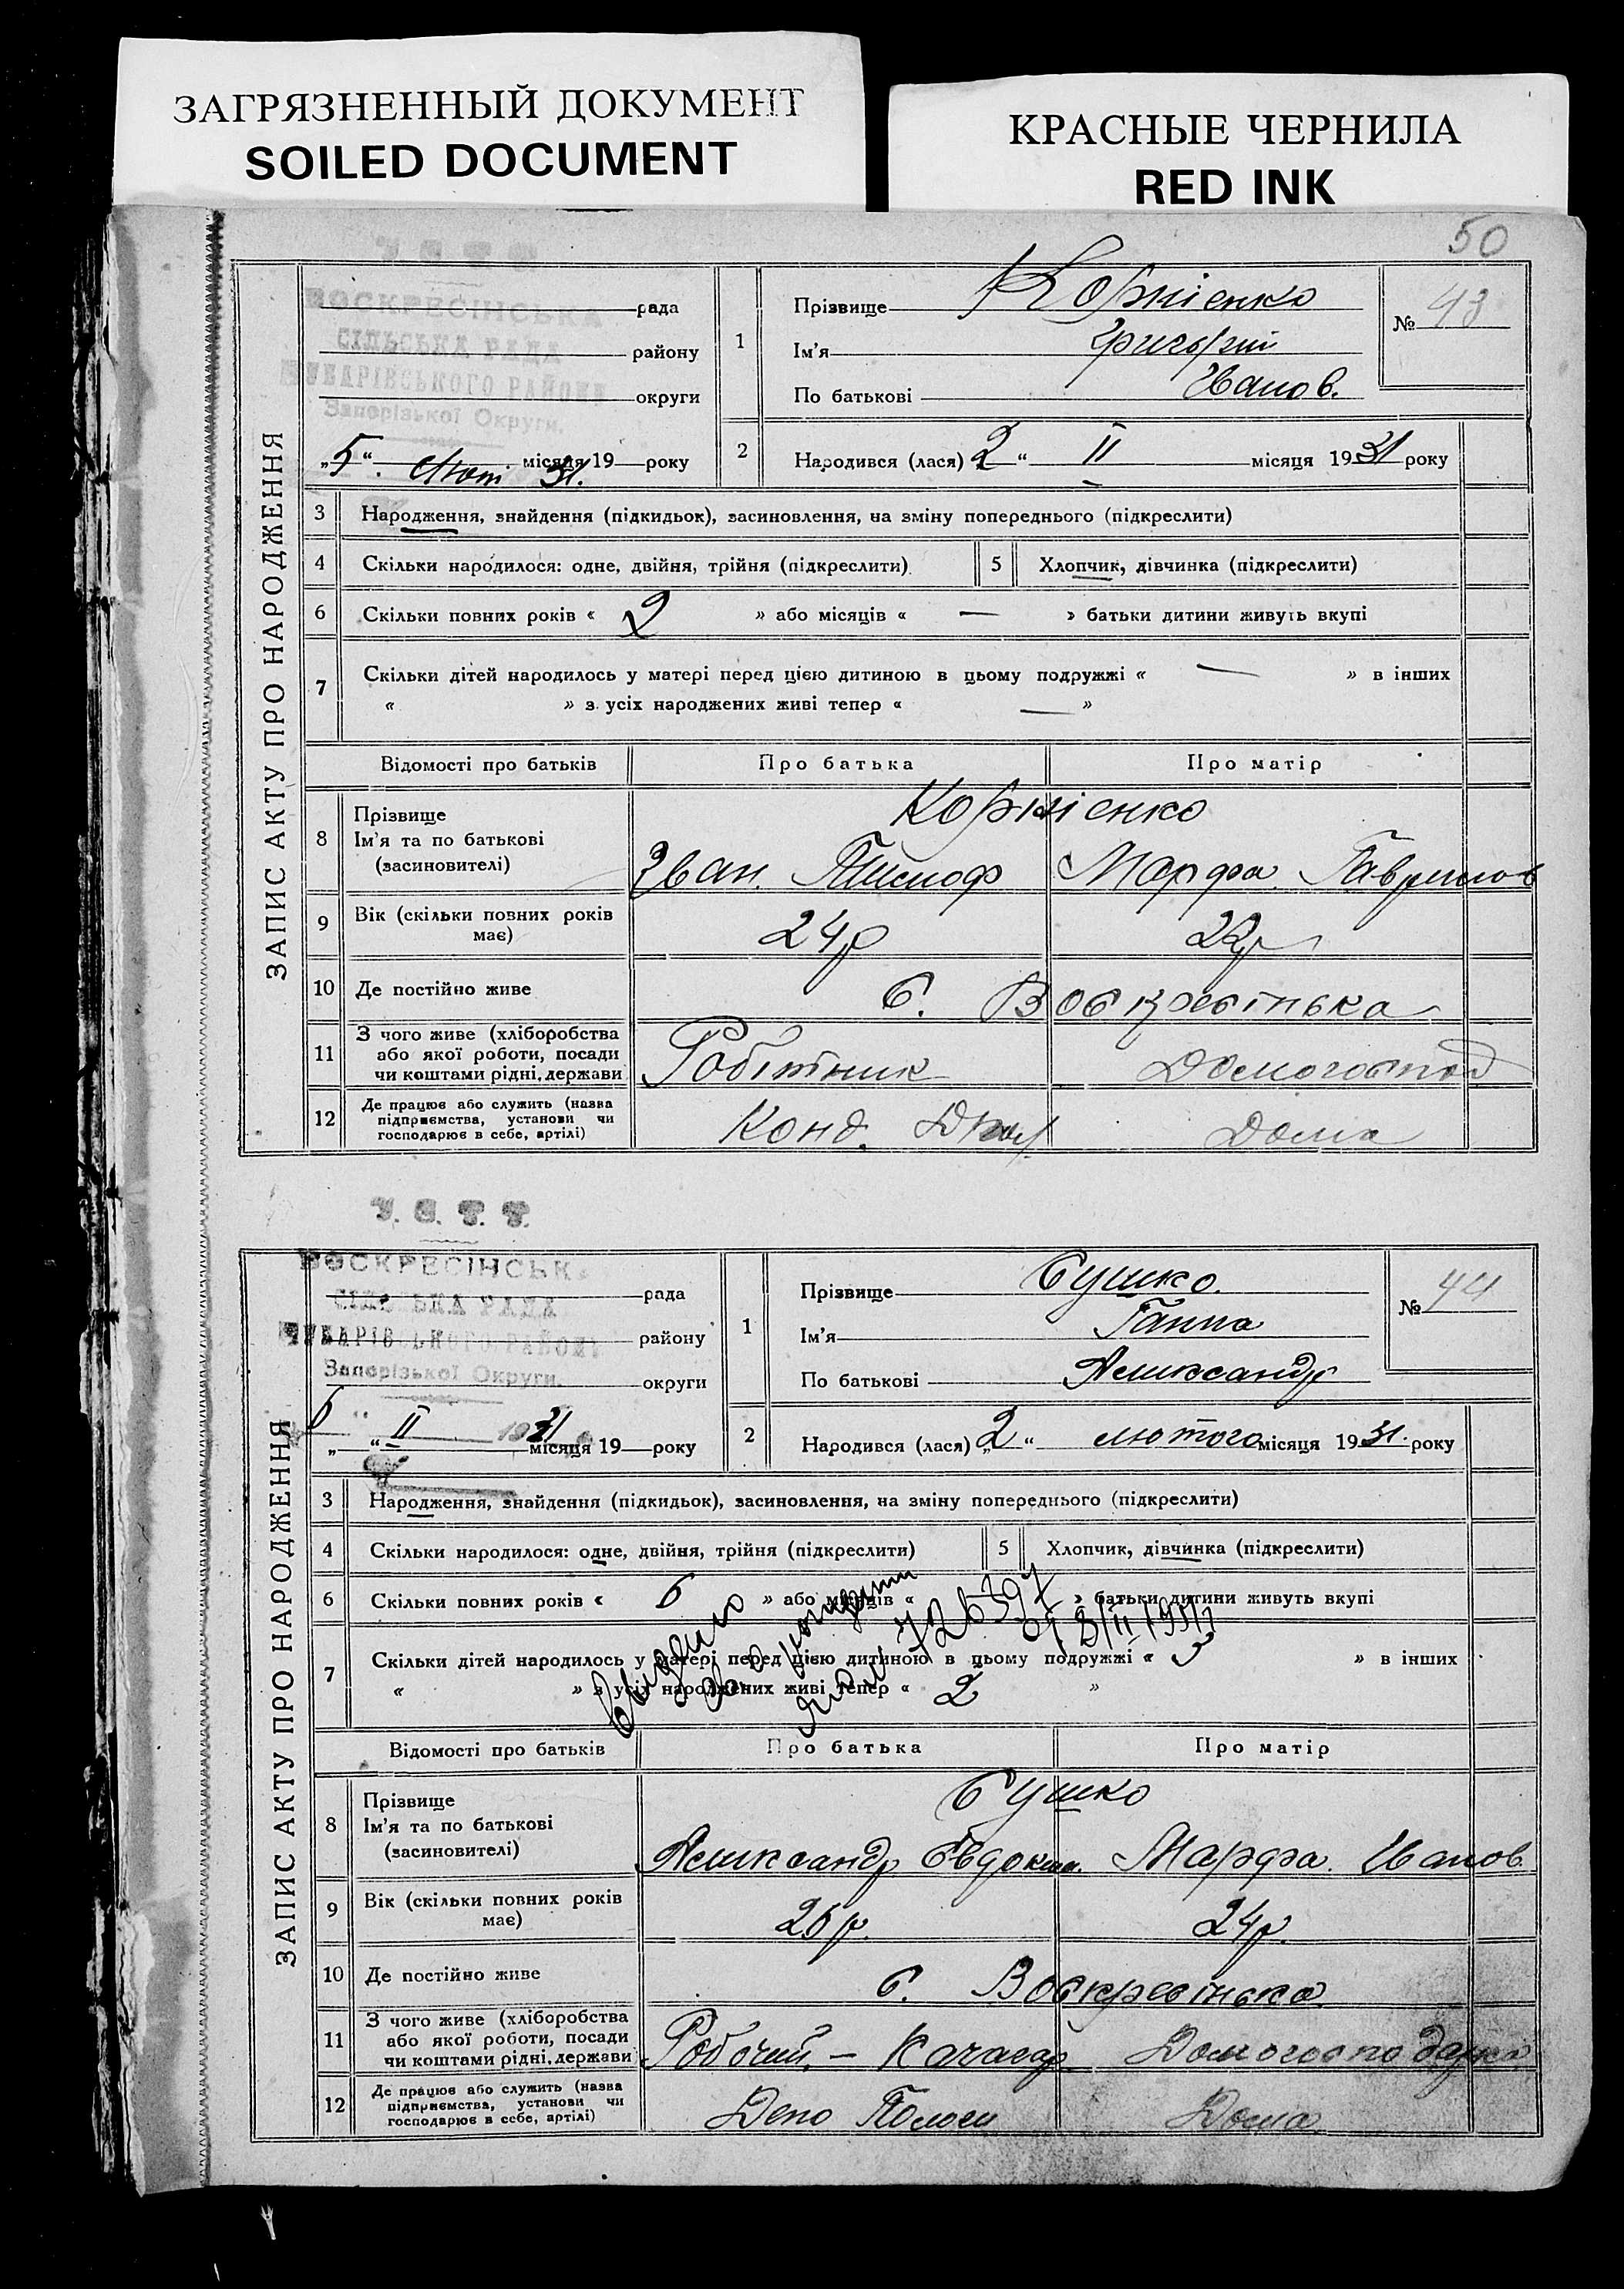 ЗАГРЯЗНЕННЫЙ ДОКУМЕНТ
SOILED DOCUMENT
КРАСНЫЕ ЧЕРНИЛА
RED INK
50
ЗАПИС АКТУ ПРО НАРОДЖЕННЯ
ВОСКРЕСІНСЬКА
рада
СІЛЬСЬКА РАДА
району
ЧУБАРІВСЬКОГО РАЙОНУ
округи
Запорізької Округи.
„5“ Лют. місяця 19 31. року
1
Прізвище Корнієнко
Ім'я Григорій
По батькові Іванов.
№ 43
2
Народився (лася) „2“ II місяця 1931 року
3 Народження, знайдення (підкидьок), засиновлення, на зміну попереднього (підкреслити)
4 Скільки народилося: одне, двійня, трійня (підкреслити) 5 Хлопчик, дівчинка (підкреслити)
6 Скільки повних років « 2 » або місяців « — » батьки дитини живуть вкупі
7 Скільки дітей народилось у матері перед цією дитиною в цьому подружжі « — » в інших
« » з усіх народжених живі тепер « — »
Відомості про батьків Про батька Про матір
8 Прізвище
Ім'я та по батькові
(засновителі)
Корнієнко
Іван. Тимоф Марфа Гаврилов
9 Вік (скільки повних років
має)
24р 22р
10 Де постійно живе с. Воскресінька
11 З чого живе (хліборобства
або якої роботи, посади
чи коштами рідні, держави
Робітник Домогоспод
12 Де працює або служить (назва
підприємства, установи чи
господарює в себе, артілі)
Конд. Дома
У. С. Р. Р.
ЗАПИС АКТУ ПРО НАРОДЖЕННЯ
ВОСКРЕСІНСЬК
рада
СІЛЬСЬКА РАДА
району
ЧУБАРІВСЬКОГО РАЙОНУ
Запорізької Округи.
округи
6 „ “ II 1931 місяця 19 року
1
Прізвище Сушко.
Ім'я Ганна
По батькові Александр
№ 44
2
Народився (лася) „2“ лютого місяця 1931. року
3 Народження, знайдення (підкидьок), засиновлення, на зміну попереднього (підкреслити)
4 Скільки народилося: одне, двійня, трійня (підкреслити) 5 Хлопчик, дівчинка (підкреслити)
6 Скільки повних років « 6 » або місяців « » батьки дитини живуть вкупі
7 Скільки дітей народилось у матері перед цією дитиною в цьому подружжі « 3 » в інших
« » з усіх народжених живі тепер « 2 »
Відомості про батьків Про батька Про матір
8 Прізвище
Ім'я та по батькові
(засиновителі)
Сушко
Александр Євдоким. Марфа Іванов.
9 Вік (скільки повних років
має)
26р. 24р.
10 Де постійно живе с. Воскресінька
11 З чого живе (хліборобства
або якої роботи, посади
чи коштами рідні, держави
Робочий – Качегар Домогосподарка
12 Де працює або служить (назва
підприємства, установи чи
господарює в себе, артілі)
Депо Пологи Дома